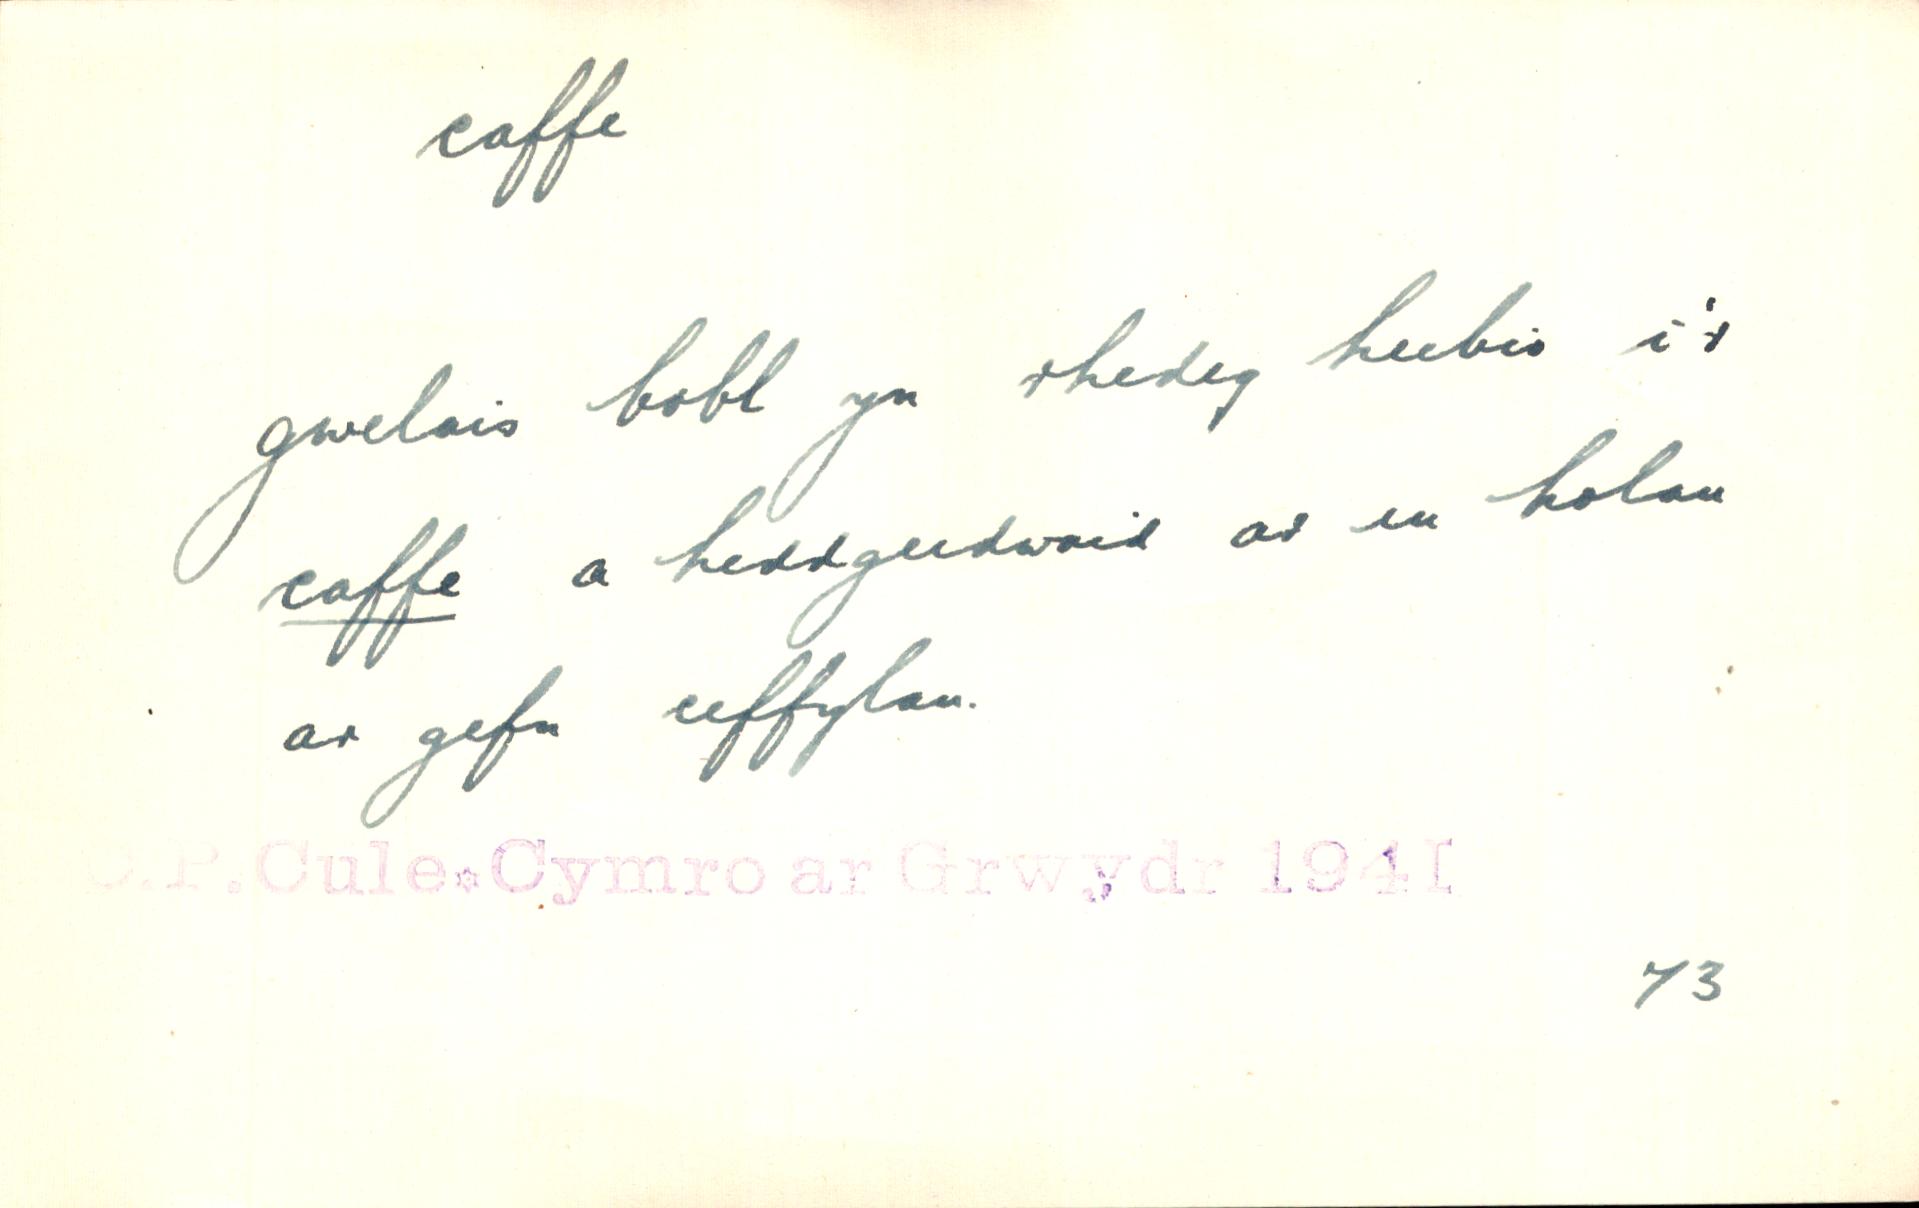 caffe
gwelais bobl yn rhedeg heibio i'r
caffe a heddgeidwaid ar eu holau
ar gefn ceffylau.
C.P.Cule. Cymro ar Grwydr 1941
73